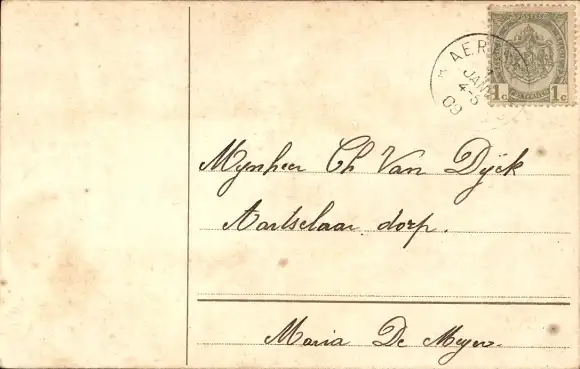 AER
JANV
4-5
09
1c 1c
Mynheer Ch Van Dÿck
Aartselaar dorp.
Maria De Meyer